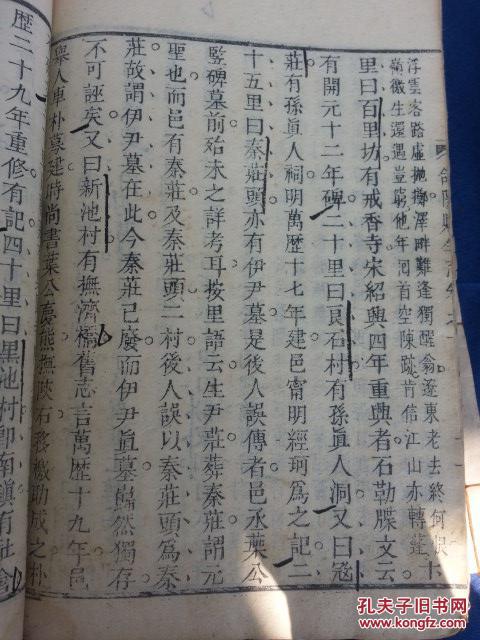 浮雲客路虛拋擲澤畔難逢獨醒翁遼東老去終何恨
微生還遇豈窮他年河首空陳蹟肯信江山亦轉蓬
十
里曰百里坊有戒香寺宋紹興四年重興者石勒牒文云
有開元十二年碑二十里曰良石村有孫眞人洞又曰寇
莊有孫眞人祠明萬歷十七年建邑甯明經珂為之記二
十五里曰秦莊頭亦有伊尹墓是後人誤傳者邑丞葉公
監碑墓前殆未之詳考耳按里語云生尹莊葬秦莊謂元
聖也而邑有秦莊及秦莊頭二村後人誤以秦莊頭為秦
莊故謂伊尹墓在此今秦莊已廢而伊尹眞墓巋然獨存
不可誣矣又曰新池村有撫濟橋舊志言萬歷十九年邑
舉人車朴募建時尚書葉公夢熊撫陝右移檄助成之朴
歷二十九年重修有記四十里曰黑池村即南鎮有社會
孔夫子旧书网
www.kongfz.com